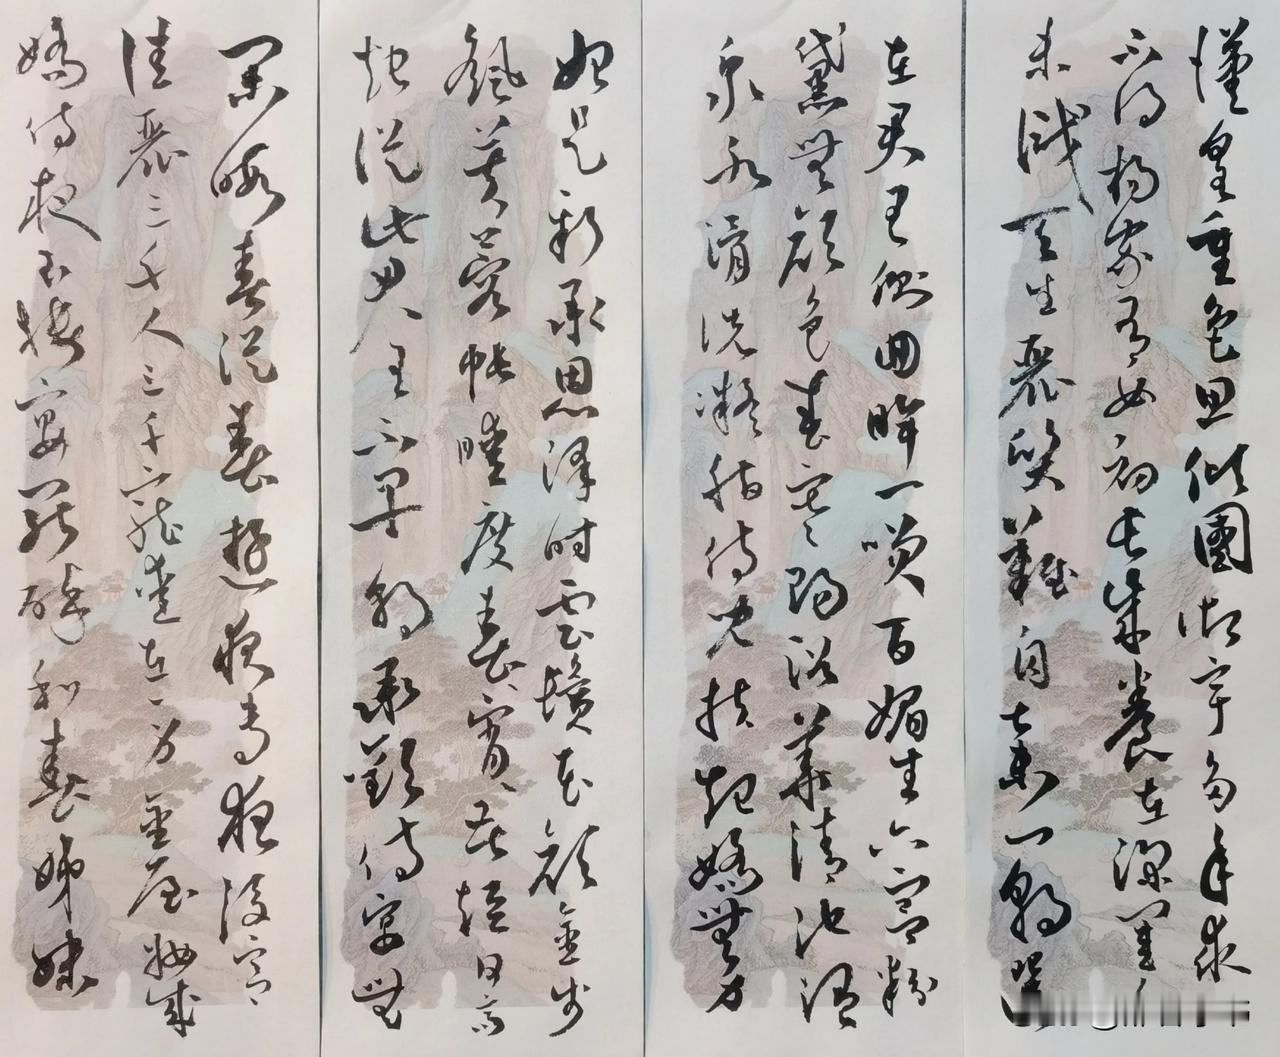 漢皇重色思傾國御宇多年求
不得楊家有女初長成養在深閨人
未識天生麗質難自棄一朝選
在君王側回眸一笑百媚生六宮粉
黛無顏色春寒賜浴華清池溫
泉水滑洗凝脂侍兒扶起嬌無力
始是新承恩澤時雲鬢花顏金步
飖芙蓉帳暖度春宵〻苦短日高
起從此君王不早朝承歡侍宴無
閑暇春從春遊夜專夜後宮
佳麗三千人三千寵愛在一身金屋妝成
嬌侍夜玉樓宴罷醉和春姊妹